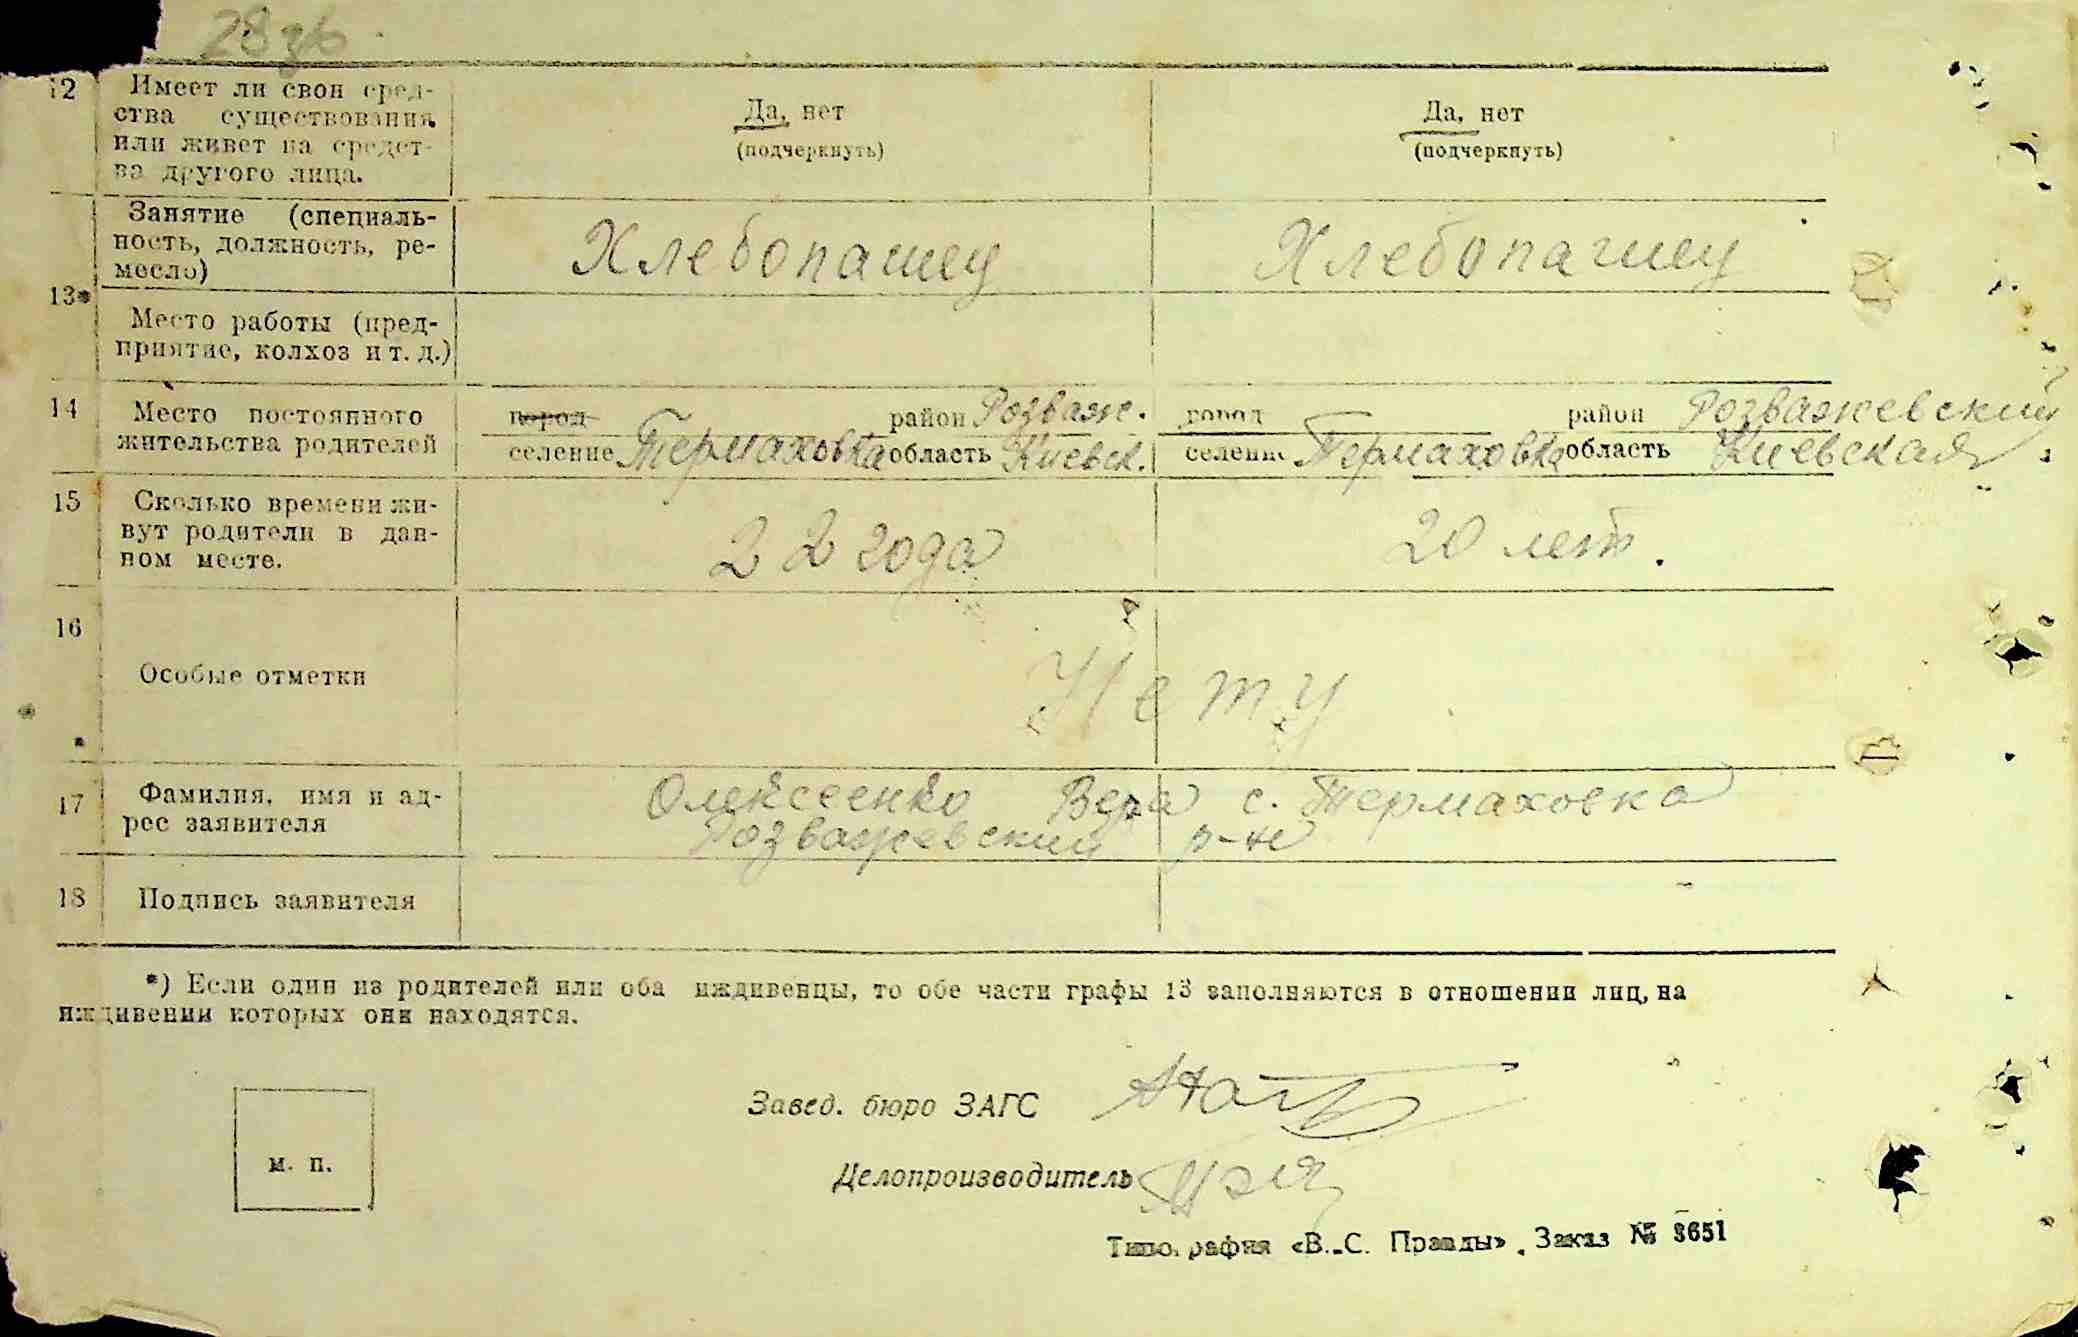 28 зб
12 Имеет ли свои сред-
ства существования
или живет на средст-
ва другого лица.
Да, нет
(подчеркнуть)
Да, нет
(подчеркнуть)
13*
Занятие (специаль-
ность, должность, ре-
месло)
Хлебопашец
Хлебопашец
Место работы (пред-
приятие, колхоз и т. д.)
14 Место постоянного
жительства родителей
город район Розваж.
селение Термаховка область Киевск.
город район Розважевский
селение Термаховка область Киевская
15 Сколько времени жи-
вут родители в дан-
ном месте.
22 года
20 лет.
16 Особые отметки
Нету
17 Фамилия, имя и ад-
рес заявителя
Олексеенко Вера с. Термаховка
Розважевский р-н
18 Подпись заявителя
*) Если один из родителей или оба иждивенцы, то обе части графы 13 заполняются в отношении лиц, на
иждивении которых они находятся.
м. п.
Завед. бюро ЗАГС
Делопроизводитель
Типография «В.-С. Правды». Заказ № 3651